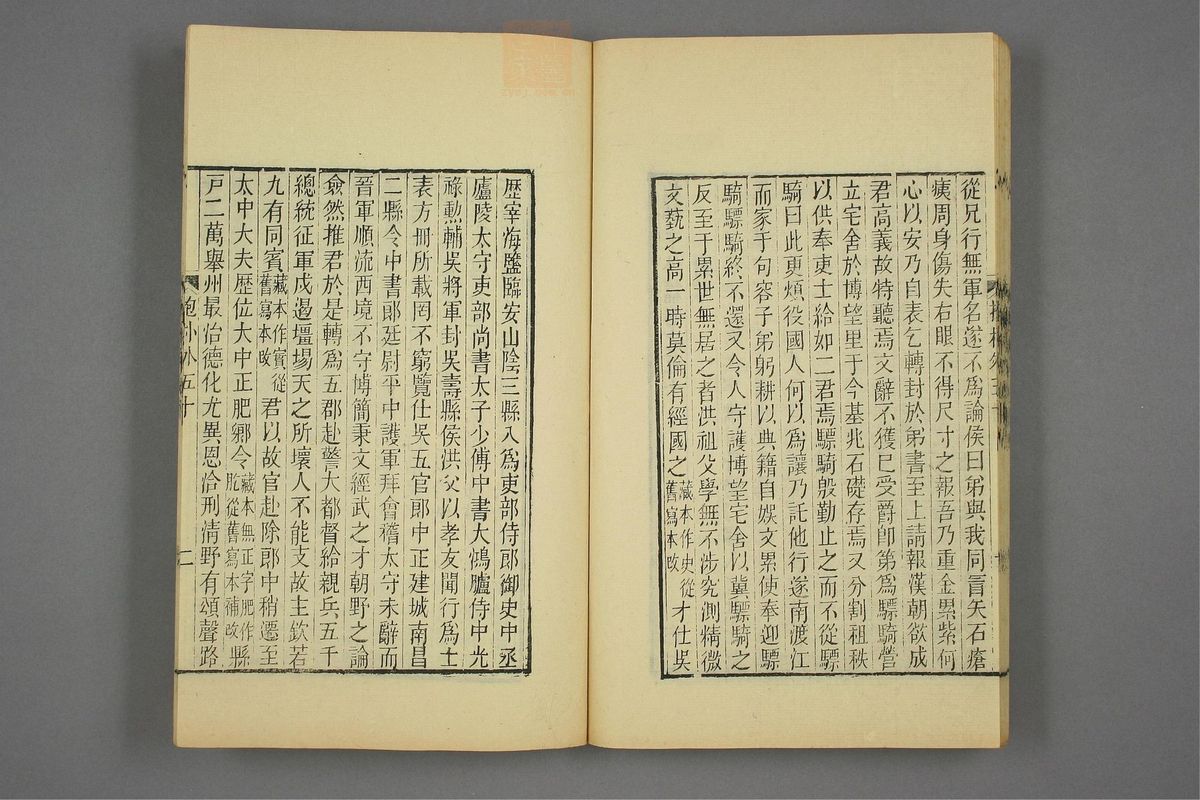 從兄行無軍名遂不爲論侯曰弟與我同冒矢石瘡
痍周身傷失右眼不得尺寸之報吾乃重金累紫何
心以安乃自表乞轉封於弟書至上請報漢朝欲成
君高義故特聽焉文辭不獲已受爵即第爲驃騎營
立宅舍於博望里于今基兆石礎存焉又分割租秩
以供奉吏士給如二君焉驃騎殷勤止之而不從驃
騎曰此更煩役國人何以爲讓乃託他行遂南渡江
而家于句容子弟躬耕以典籍自娛文累使奉迎驃
騎驃騎終不還又令人守護博望宅舍以冀驃騎之
反至于累世無居之者洪祖父學無不涉究測精微
文藝之高一時莫倫有經國之藏本作史從舊寫本改才仕吳
歷宰海鹽臨安山陰三縣入爲吏部侍郎御史中丞
廬陵太守吏部尚書太子少傅中書大鴻臚侍中光
祿勲輔吳將軍封吳壽縣侯洪父以孝友聞行爲士
表方冊所載罔不窮覽仕吳五官郎中正建城南昌
二縣令中書郎廷尉平中護軍拜會稽太守未辭而
晉軍順流西境不守博簡秉文經武之才朝野之論
僉然推君於是轉爲五郡赴警大都督給親兵五千
總統征軍戍遏壃場天之所壞人不能支故主欽若
九有同賓藏本作實從舊寫本改君以故官赴除郎中稍遷至
太中大夫歷位大中正肥鄉令藏本無正字肥作肶從舊寫本補改縣
戸二萬舉州最治德化尤異恩洽刑清野有頌聲路
抱朴外五十
二